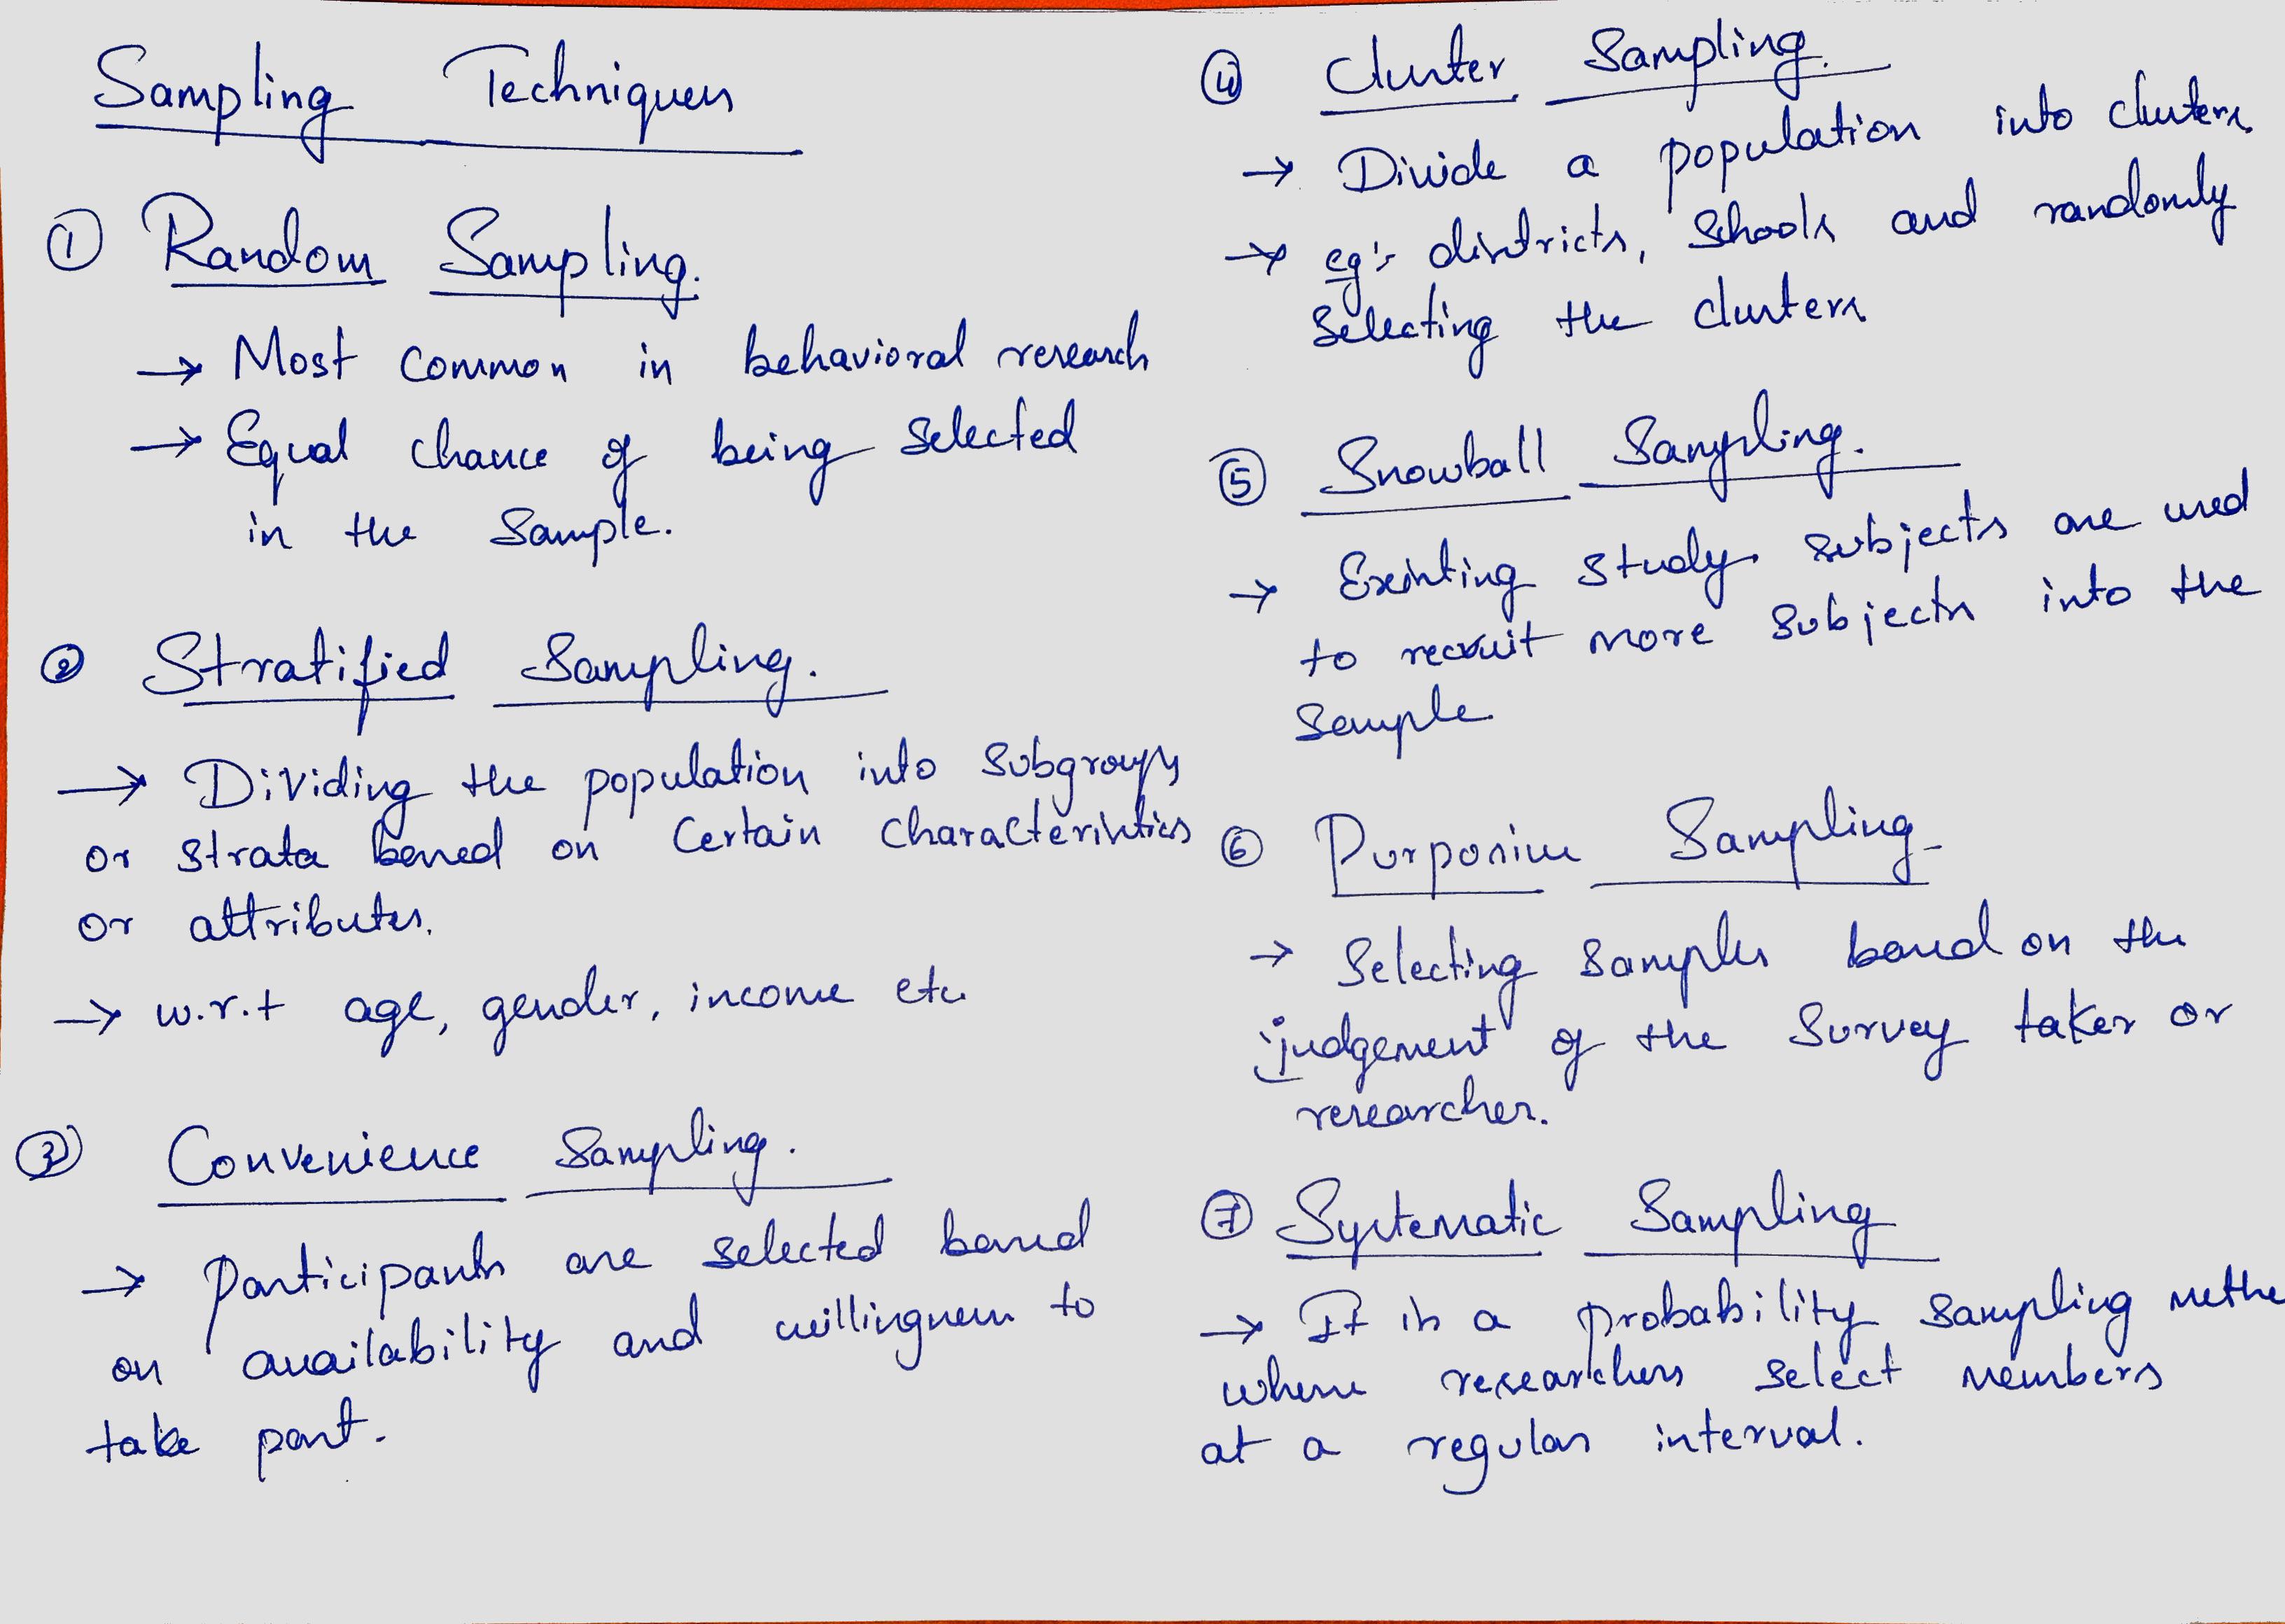 Sampling Techniques
① Random Sampling.
→ Most common in behavioral research
→ Equal chance of being selected
in the sample.
② Stratified Sampling.
→ Dividing the population into subgroups
or strata based on certain characteristics
or attributes.
→ w.r.t age, gender, income etc.
③ Convenience Sampling.
→ Participants are selected based
on availability and willingness to
take part.
④ Cluster Sampling.
→ Divide a population into clusters.
→ eg's districts, schools and randomly
selecting the clusters
⑤ Snowball Sampling.
→ Existing study subjects are used
to recruit more subjects into the
sample
⑥ Purposive Sampling
→ Selecting samples based on the
judgement of the survey taker or
researcher.
⑦ Systematic Sampling
→ It is a probability sampling methe
where researchers select members
at a regular interval.